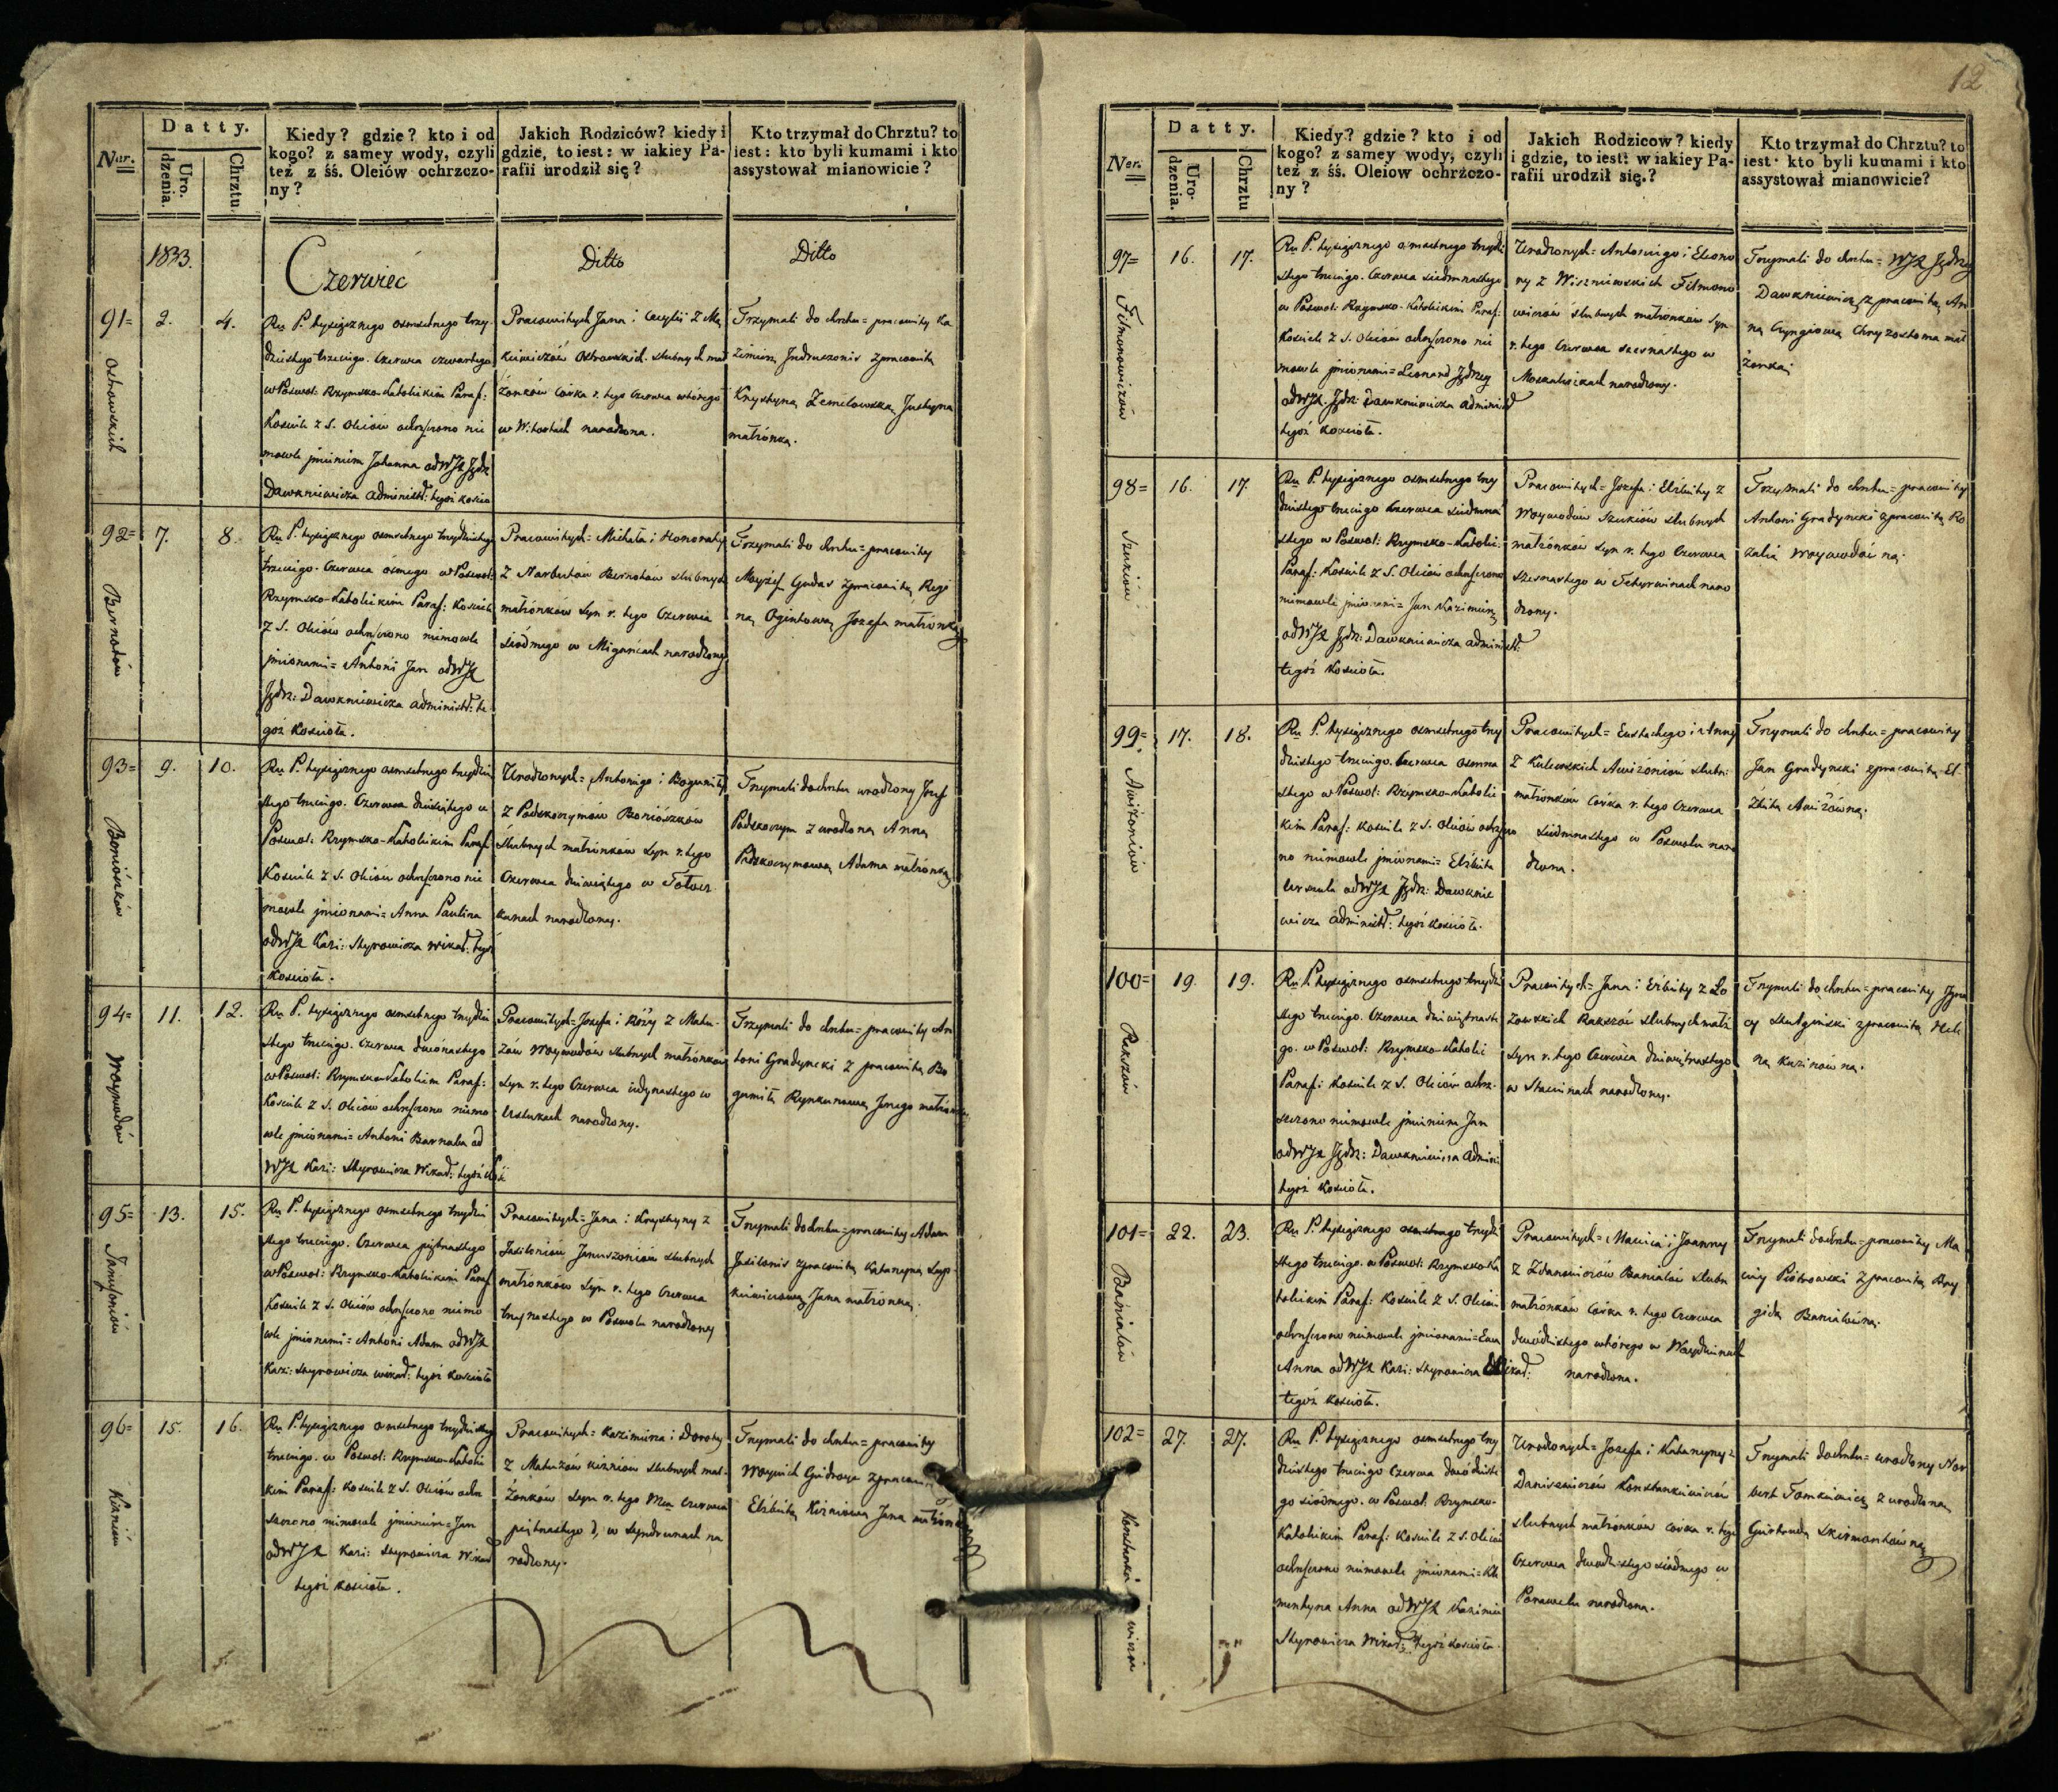 12
Nur.
Datty.
Uro-
dzenia.
Chrztu.
Kiedy? gdzie? kto i od
kogo? z samey wody, czyli
też z śś. Oleiów ochrzczo-
ny?
Jakich Rodziców? kiedy i
gdzie, to iest: w iakiey Pa-
rafii urodził się?
Kto trzymał do Chrztu? to
iest: kto byli kumami i kto
assystował mianowicie?
1833.
Czerwiec
Ditto
Ditto
91=
Ostrowskich
2.
4.
Ru P. tysiącznego osmsetnego trzy
dziestego trzeciego. Czerwca czwartego
w Poswol: Rzymsko-Katolickim Paraf:
Kościele z S. Oleiów ochrzczono nie
mowle jmieniem Johanna od WJX Jędr:
Dawkniewicza administ: tegoż Kościo
Pracowitych Jana i Cecylii z Ma
kiewiczów Ostrowskich slubnych mał
żonków Córka r. tego Czerwca wtórego
narodzona.
Trzymali do chrztu= pracowity Ka
zimierz z pracowitą
Krystyną Justyna
małżonką.
92=
Bernotów
7.
8.
Ru P. tysiącznego osmsetnego trzydziestego
trzeciego. Czerwca ósmego w Poswol:
Rzymsko-Katolickim Paraf: Kościele
z S. Oleiów ochrzczono niemowle
jmionami= Antoni Jan od WJX
Jędrz: Dawkniewicza administ: te
goż Kościoła.
Pracowitych= Michała i Honoraty
z Norbutów Bernotów slubnych
małżonków Syn r. tego Czerwca
siódmego w Migańcach narodzony
Trzymali do chrztu= pracowity
Mojżesz Gudas z pracowitą Regi
ną Ogintową Jozefa małżonką
93=
Boniószków
9.
10.
Ru P. tysiącznego osmsetnego trzydzie
stego trzeciego. Czerwca dziesiątego w
Poswol: Rzymsko-Katolickim Paraf:
Kościele z S. Oleiów ochrzczono nie
mowle jmionami= Anna Paulina
od WJX Kazi: Skyrowicza Wikar: tegoż
Kościoła.
Urodzonych= Antoniego i Bogumiły
z Podskoczymów Boniószków
Slubnych małżonków Syn r. tego
Czerwca dziewiątego w
kunach narodzony.
Trzymali do chrztu urodzony Jozef
Podskoczym z urodzoną Anną
Podskoczymową Adama małżonką
94=
Woywodów
11.
12.
Ru P. tysiącznego osmsetnego trzydzie
stego trzeciego. Czerwca dwónastego
w Poswol: Rzymsko-Katolickim Paraf:
Kościele z S. Oleiów ochrzczono niemo
wle jmionami= Antoni Barnaba od
WJX Kazi: Skyrowicza Wikar: tegoż Koś:
Pracowitych= Jozefa i Rózy z Matu-
zów Woywodów slubnych małżonków
Syn r. tego Czerwca iedynastego w
Ustukach narodzony.
Trzymali do chrztu= pracowity An
toni Gradynski z pracowitą Bo
gumiłą Rynkunową Jerzego małżonką
95=
Januszoniów
13.
15.
Ru P. tysiącznego osmsetnego trzydzie
stego trzeciego. Czerwca piętnastego
w Poswol: Rzymsko-Katolickim Paraf:
Kościele z S. Oleiów ochrzczono niemo
wle jmionami= Antoni Adam od WJX
Kazi: Skyrowicza Wikar: tegoż Kościoła
Pracowitych= Jana i Krystyny z
Jasiloniów Januszoniów slubnych
małżonków Syn r. tego Czerwca
trzynastego w Poswolu narodzony
Trzymali do chrztu= pracowity Adam
Jasilonis z pracowitą Katarzyną
Jana małżonką.
96=
Kiżniów
15.
16.
Ru P. tysiącznego osmsetnego trzydziestego
trzeciego. w Poswol: Rzymsko-Katolic
kim Paraf: Kościele z S. Oleiów ochr
szczono niemowle jmieniem= Jan
od WJX Kazi: Skyrowicza Wikar:
tegoż Kościoła.
Pracowitych= Kazimierza i Doroty
z Matuzów Kiżniów slubnych mał-
żonków Syn r. tego Mca Czerwca
piętnastego w Syndrunach na
rodzony.
Trzymali do chrztu= pracowity
Woyciech z pracowitą
Elżbietą Kiżniową Jana małżonką
Ner.
Datty.
Uro-
dzenia.
Chrztu
Kiedy? gdzie? kto i od
kogo? z samey wody, czyli
też z śś. Oleiow ochrzczo-
ny?
Jakich Rodzicow? kiedy
i gdzie, to iest: w iakiey Pa-
rafii urodził się.?
Kto trzymał do Chrztu? to
iest: kto byli kumami i kto
assystował mianowicie?
97=
Filmonowiczów
16.
17.
Ru P. tysiącznego osmsetnego trzydzie
stego trzeciego. Czerwca siedmnastego
w Poswol: Rzymsko-Katolickim Paraf:
Kościele z S. Oleiów ochrzczono nie
mowle jmionami= Leonard Jędrzey
od WJX Jędr: Dawkniewicza administ
tegoż Kościoła.
Urodzonych= Antoniego i Eleono
ry z Wiszniewskich Filmono
wiczów slubnych małżonków Syn
r. tego Czerwca szesnastego w
Moskaliszkach narodzony.
Trzymali do chrztu= WJX Jędrzey
Dawkniewicz z pracowitą An
ną Chryzostoma mał
żonką.
98=
Szukiów
16.
17
Ru P. tysiącznego osmsetnego trzy
dziestego trzeciego Czerwca siedmna
stego w Poswol: Rzymsko-Katolic:
Paraf: Kościele z S. Oleiów ochrzczono
niemowle jmionami= Jan Kazimierz
od WJX Jędr: Dawkniewicza administ:
tegoż Kościoła.
Pracowitych= Jozefa i Elżbiety z
Woywodów Szukiów slubnych
małżonków Syn r. tego Czerwca
szesnastego w naro
dzony.
Trzymali do chrztu= pracowity
Antoni Gradynski z pracowitą Ro
zalią Woywodówną.
99=
Awiżoniów
17.
18.
Ru P. tysiącznego osmsetnego trzy
dziestego trzeciego. Czerwca osmna
stego w Poswol: Rzymsko-Katolic
kim Paraf: Kościele z S. Oleiów ochrzczo
no niemowle jmionami= Elżbieta
Urszula od WJX Jędr: Dawknie
wicza administ: tegoż Kościoła.
Pracowitych= Eustachego i Anny
z Kulewskich Awiżoniów slubn:
małżonków Córka r. tego Czerwca
siedmnastego w Poswolu naro
dzona.
Trzymali do chrztu= pracowity
Jan Gradynski z pracowitą El-
żbietą Awiżówną.
100=
Rakszów
19.
19.
Ru P. tysiącznego osmsetnego trzydzie
stego trzeciego. Czerwca dziewiętnaste
go. w Poswol: Rzymsko-Katolic
Paraf: Kościele z S. Oleiów ochrz-
szczono niemowle jmieniem Jan
od WJX Jędr: Dawkniewicza admin:
tegoż Kościoła.
Pracowitych= Jana i Elżbiety z Ło
zowskich Rakszów slubnych małż
Syn r. tego Czerwca dziewiętnastego
w Staciunach narodzony.
Trzymali do chrztu= pracowity Igna
cy z pracowitą Hele
ną Kazinówną.
101=
Banialów
22.
23.
Ru P. tysiącznego osmsetnego trzydzie
stego trzeciego. w Poswol: Rzymsko Ka
tolickim Paraf: Kościele z S. Oleiów
ochrzczono niemowle jmionami= Ewa
Anna od WJX Kazi: Skyrowicza Wikar:
tegoż Kościoła.
Pracowitych= Macieia i Joanny
z Zdanowiczów Banialów slubn
małżonków Córka r. tego Czerwca
dwudziestego wtórego w
narodzona.
Trzymali do chrztu= pracowity Ma
ciey Piotrowski z pracowitą Bry
gidą Banialówną.
102=
Konstankiewiczów
27.
27.
Ru P. tysiącznego osmsetnego trzy
dziestego trzeciego Czerwca dwódzieste
go siódmego. w Poswol: Rzymsko-
Katolickim Paraf: Kościele z S. Oleiów
ochrzczono niemowle jmionami= Kle
mentyna Anna od WJX Kazimie
Skyrowicza Wikar: tegoż Kościoła.
Urodzonych= Jozefa i Katarzyny z
Daniszewiczów Konstankiewiczów
slubnych małżonków Córka r. tego
Czerwca dwudziestego siódmego w
Porawelu narodzona.
Trzymali do chrztu= urodzony Nor
bert Tomkiewicz z urodzoną
Gertrudą Skirmontówną